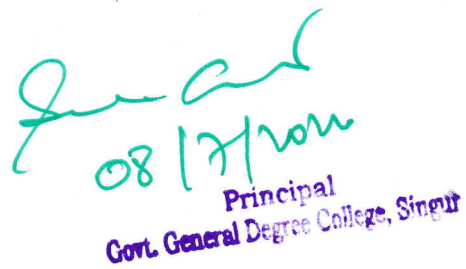 08/7/2022
Principal
Govt. General Degree College, Singur